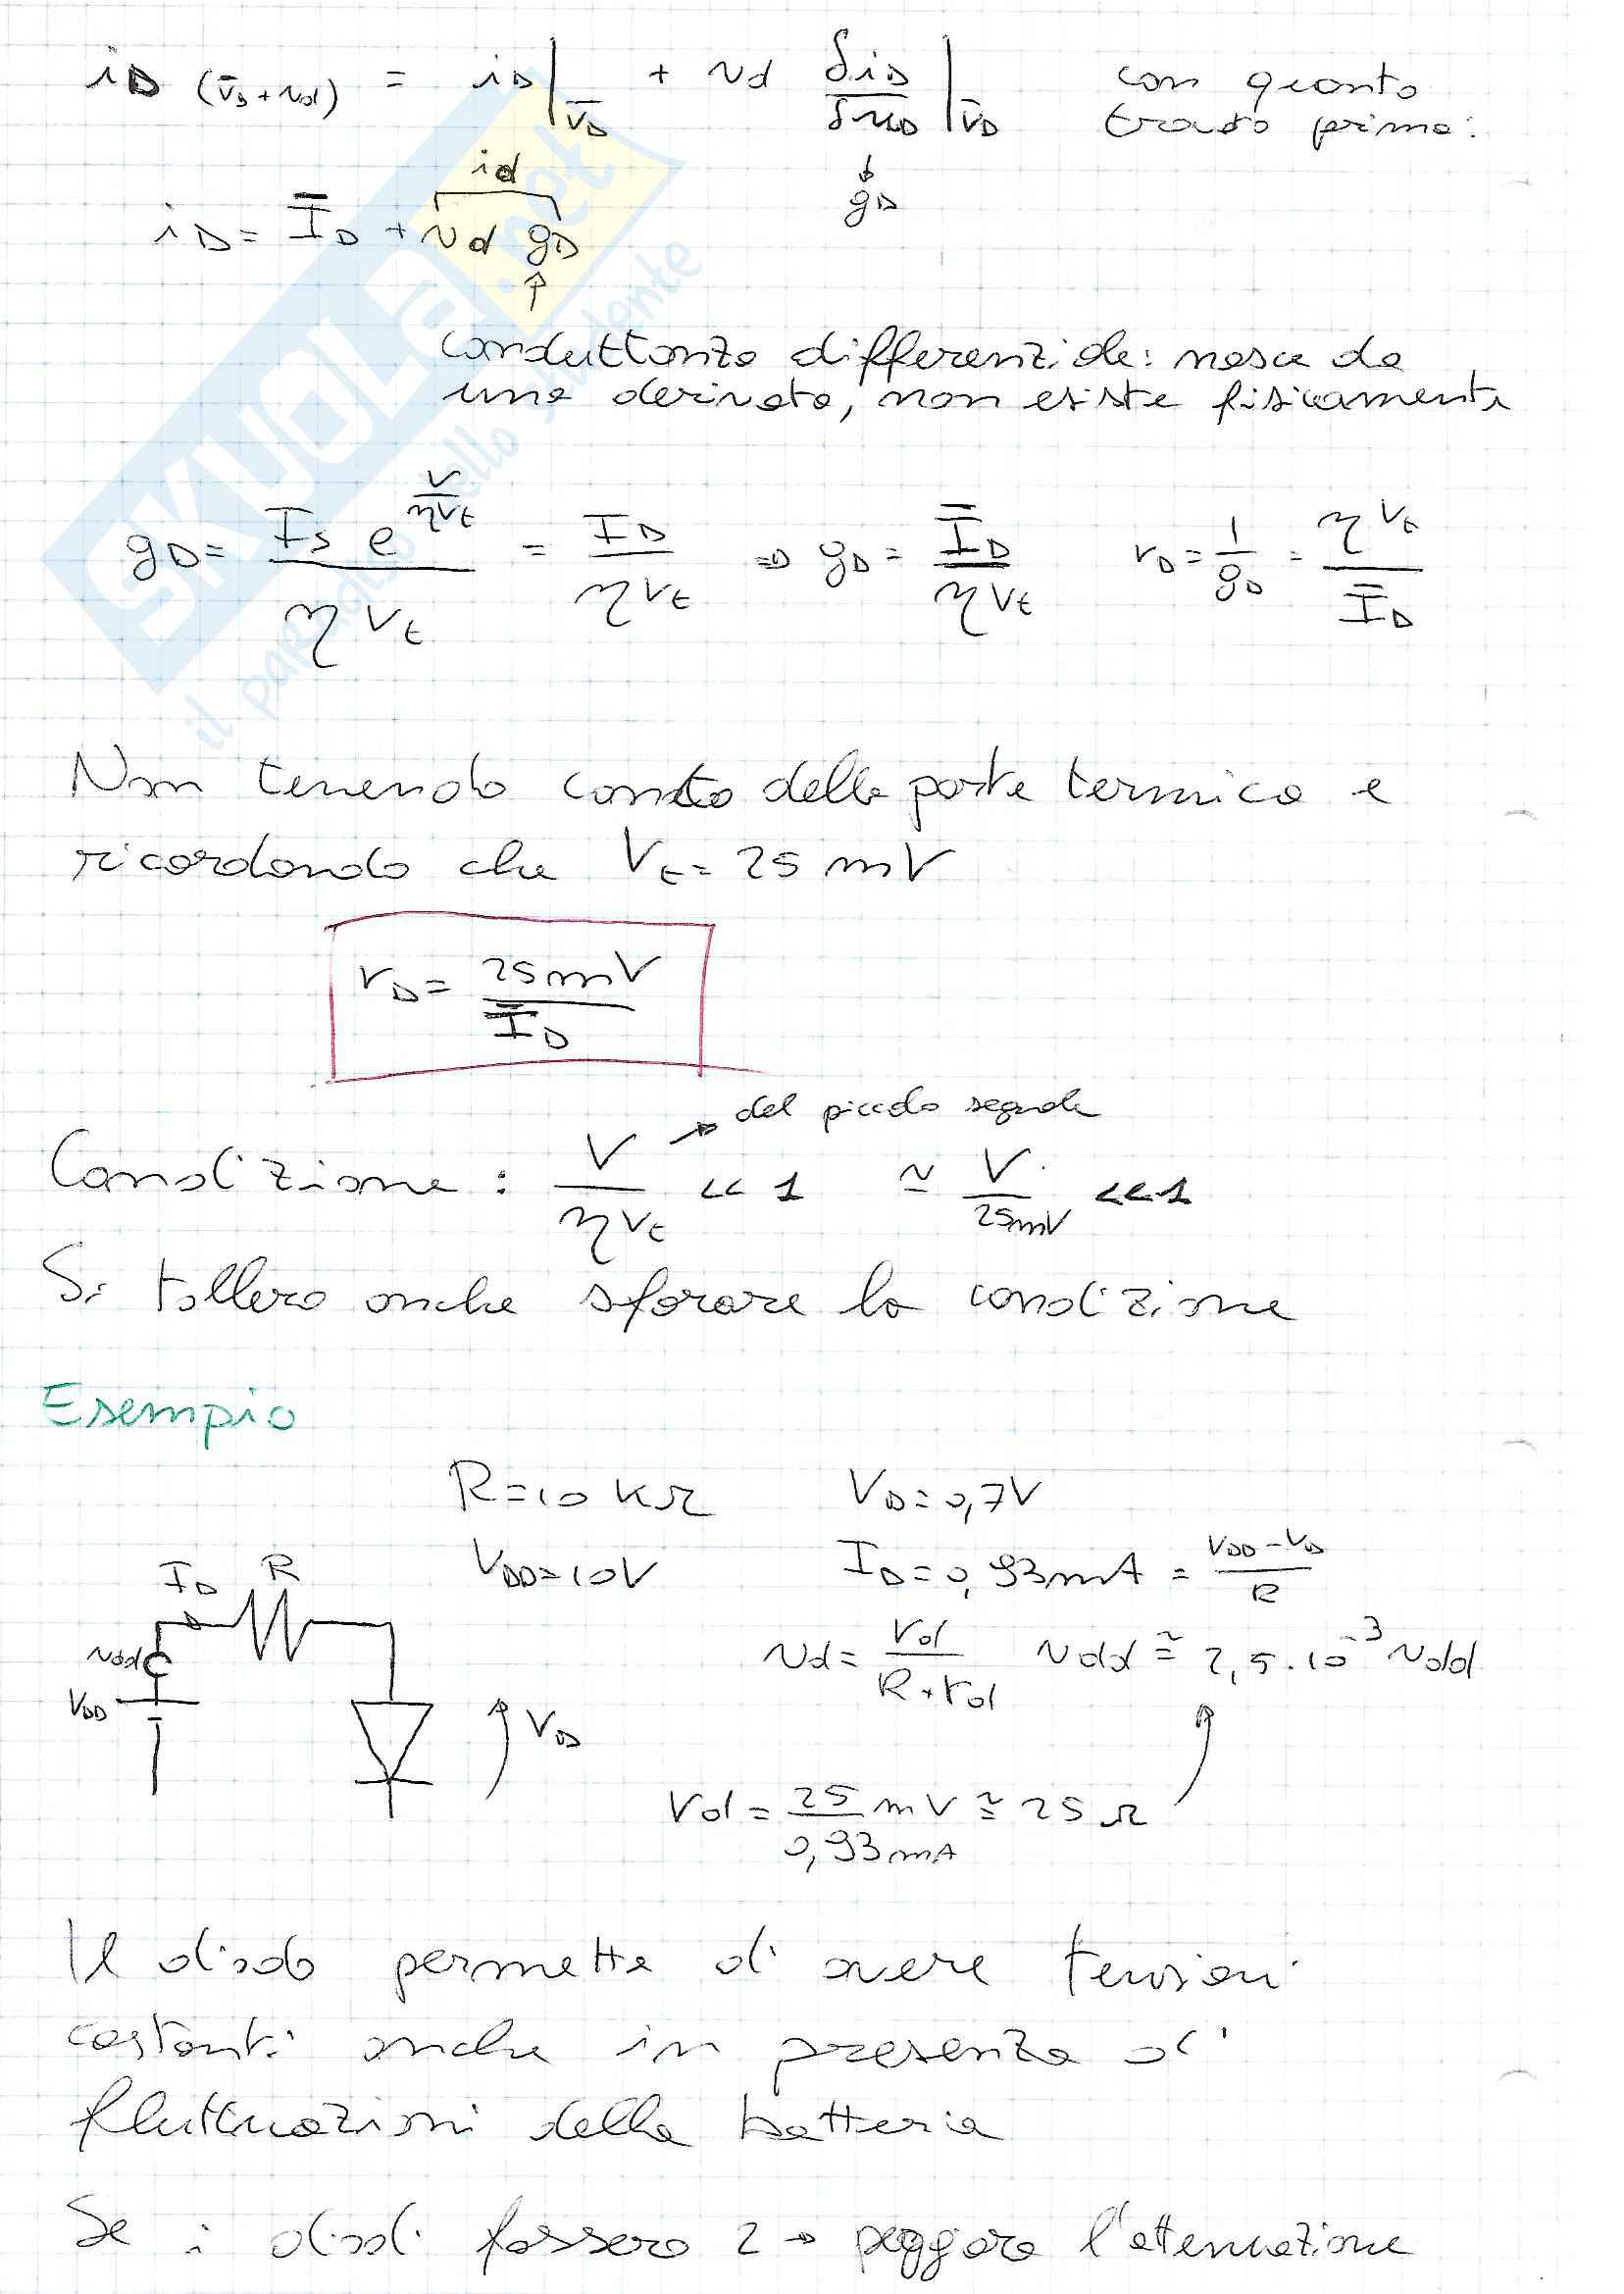 iD (V̄D + vd) = iD|V̄D + vd δiD/δvD|V̄D con quanto
trovato prima:
gD
id
iD = ĪD + vd gD
conduttanza differenziale: nasce da
una derivata, non esiste fisicamente
gD = Is e^(V/ηVt) / ηVt = ID/ηVt ⇒ gD = ĪD/ηVt rD = 1/gD = ηVt/ĪD
Non tenendo conto della parte termica e
ricordando che Vt = 25 mV
rD = 25mV/ĪD
del piccolo segnale
Condizione : V/ηVt << 1 ≃ V/25mV << 1
Si tollera anche sforare la condizione
Esempio
R = 10 KΩ VD = 0,7V
VDD = 10V ID = 0,93mA = (VDD - VD)/R
ID R
vdd
VDD
VD
vd = rd/(R+rd) vdd ≅ 2,5·10^-3 vdd
rd = 25/0,93mA mV ≅ 25 Ω
Il diodo permette di avere tensioni
costanti anche in presenza di
fluttuazioni della batteria
Se i diodi fossero 2 → peggiora l'attenuazione
SKUOLA.net
il paradiso dello studente